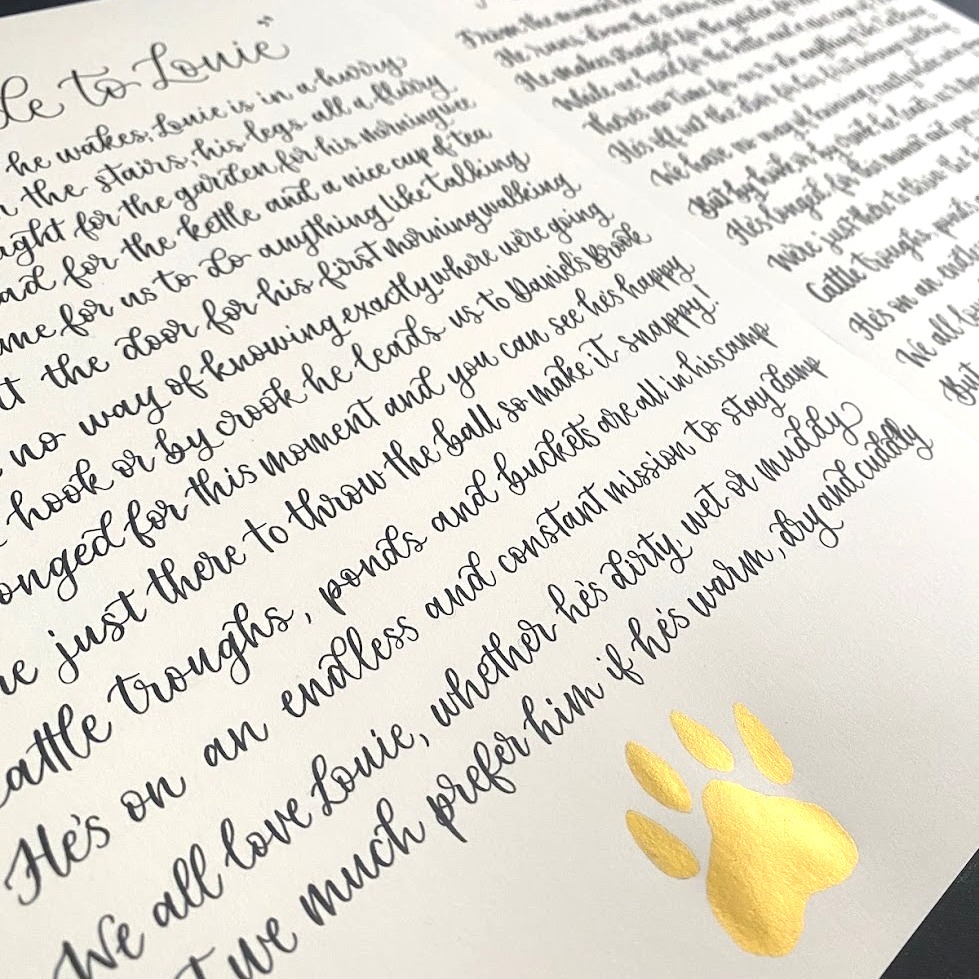 to Louie"
he wakes, Louie is in a hurry
the stairs, his legs all a flurry
aight for the garden for his morning wee
ad for the kettle and a nice cup of tea
me for us to do anything like talking
t the door for his first morning walking
no way of knowing exactly where we're going
hook or by crook he leads us to Daniel's Brook
onged for this moment and you can see he's happy
re just there to throw the ball so make it snappy!
Cattle troughs, ponds and buckets are all in his camp
He's on an endless and constant mission to stay damp
We all love Louie, whether he's dirty, wet or muddy
t we much prefer him if he's warm, dry and cuddly
From the moment
He runs down the stairs
He makes straight for the garden for
While we head for the kettle and a nice cup of
There's no time for us to do anything like talking
He's off out the door for his first morning walking
We have no way of knowing exactly where
But by hook or by crook he leads us to
He's longed for this moment and you
We're just there to throw the
Cattle troughs, ponds
He's on an endl
We all lo
But